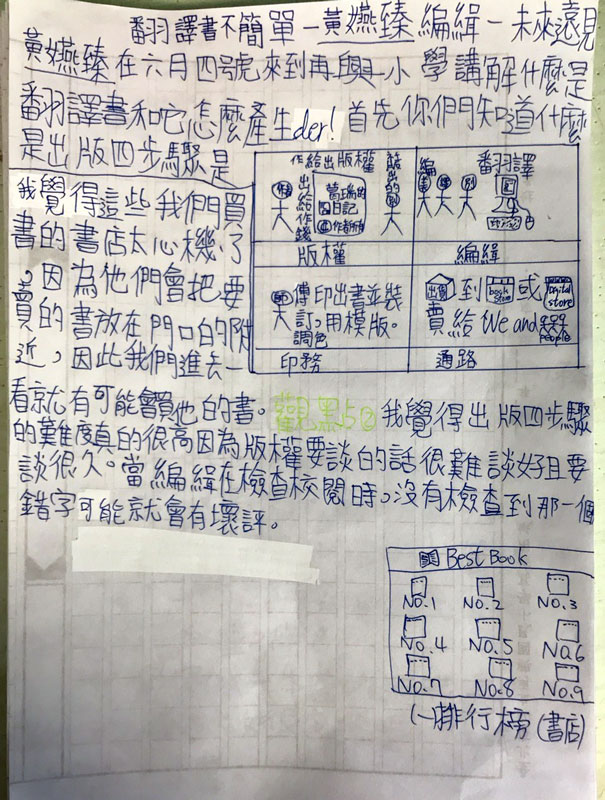 翻譯書不簡單-黃嬿臻編緝-未來親
黃嬿臻在六月四號來到再興小學講解什麼是
翻譯書和它怎麼產生der!首先你們知道什麼
是出版四步驟是
我覺得這些我們買
書的書店太心機了
,因為他們會把要
賣的書放在門口的附
近,因此我們進去一
看就有可能會買他的書。觀點2我覺得出版四步驟
的難度真的很高因為版權要談的話很難談好且要
談很久。當編緝在檢查校閱時,沒有檢查到那一個
錯字可能就會有壞評。
作給出版權
出給作錢
日記
版權
編
翻譯
編緝
傳印出書並裝
訂,用模版。
調色
印務
出版到book store或Digital store
賣給We and people
通路
Best Book
NO.1 NO.2 NO.3
NO.4 NO.5 NO.6
NO.7 NO.8 NO.9
(一)排行榜(書店)